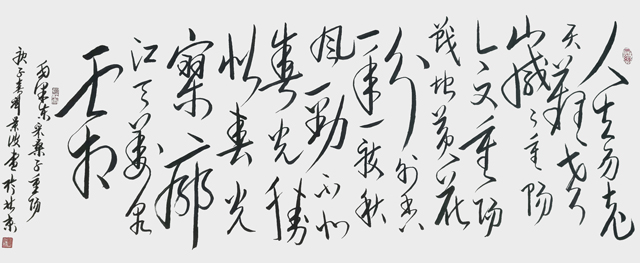 人生易老
天難老
歲々重陽
今又重陽
戰地黃花
分外香
一年一度秋
風勁不似
春光勝
似春光
寥廓
江天萬里
霜
毛澤東采桑子重陽
庚子春周景波書於北京